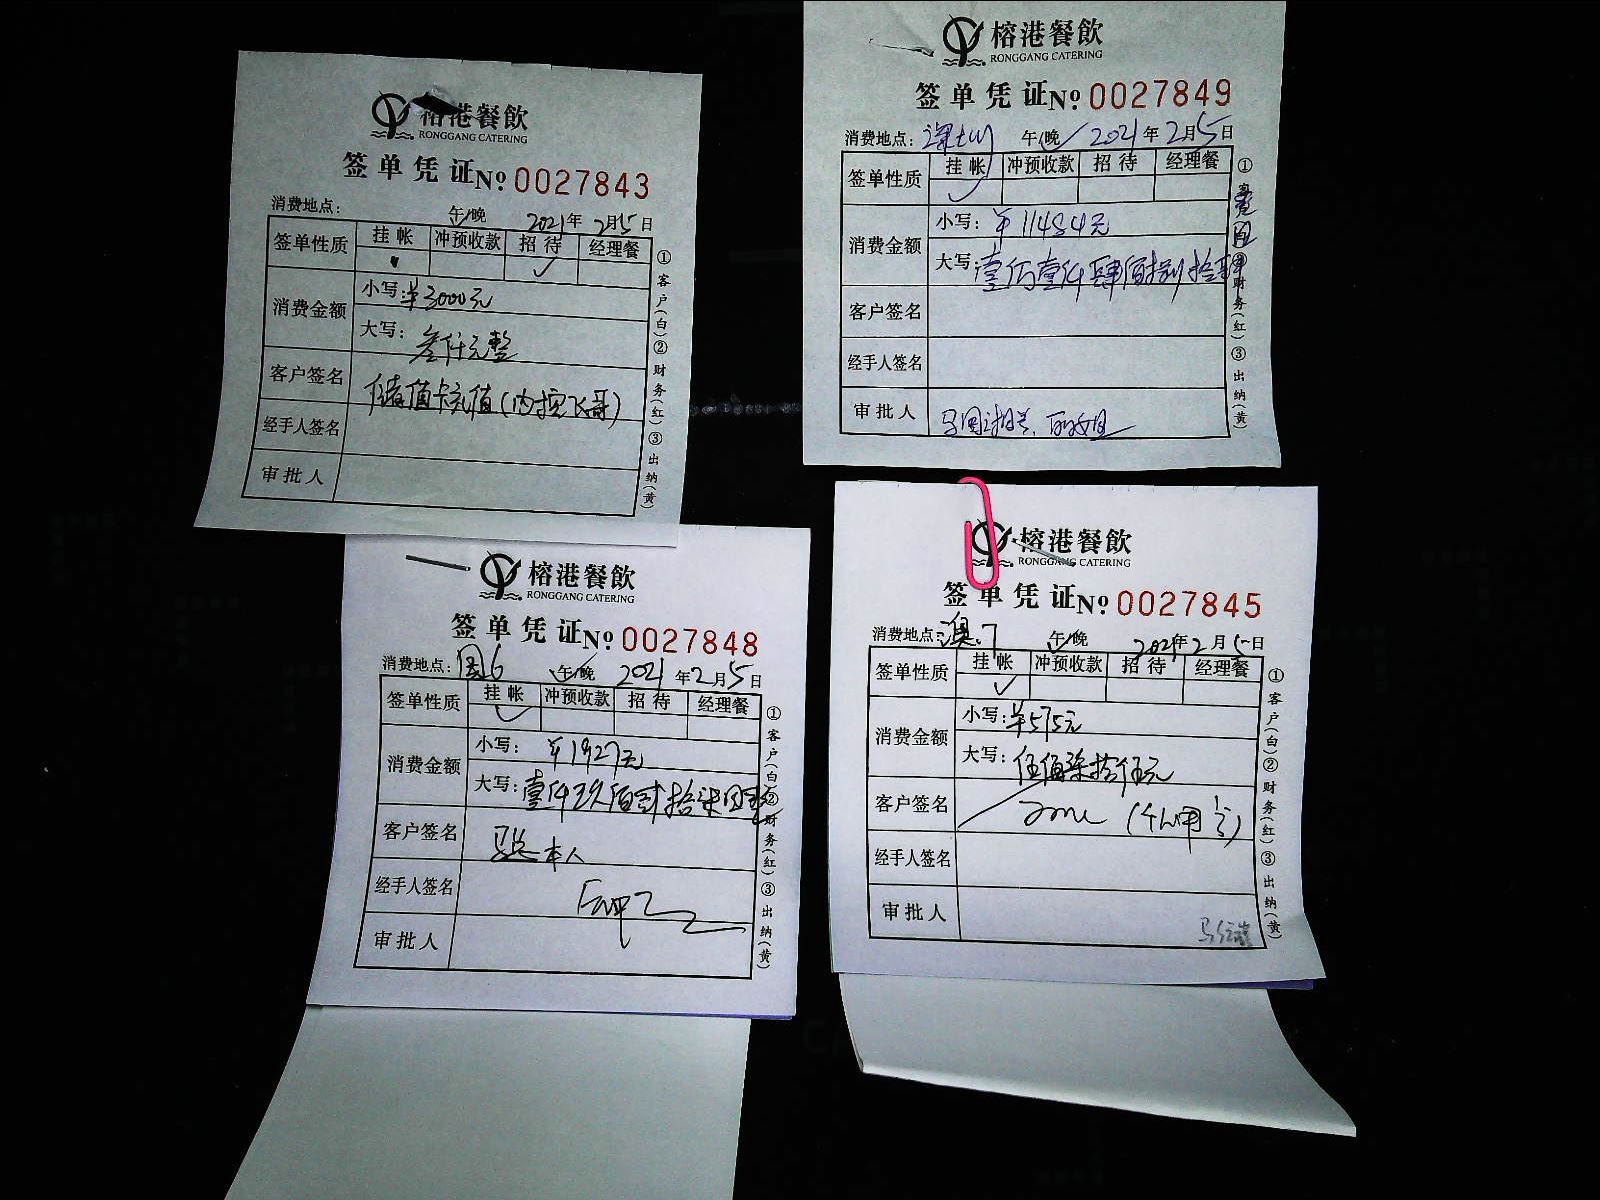 榕港餐飲
RONGGANG CATERING
签单凭证№ 0027843
消费地点： 午/晚 2021年2月5日
签单性质 挂帐 冲预收款 招待 经理餐
消费金额 小写：¥3000元
大写：叁仟元整
客户签名 储值卡充值(内招飞哥)
经手人签名
审批人
①客户(白)②财务(红)③出纳(黄)
榕港餐飲
RONGGANG CATERING
签单凭证№ 0027849
消费地点： 午/晚 2021年2月5日
签单性质 挂帐 冲预收款 招待 经理餐
消费金额 小写：¥11484元
大写：壹万壹仟肆佰捌拾肆
客户签名
经手人签名
审批人
财务(红)③出纳(黄)
榕港餐飲
RONGGANG CATERING
签单凭证№ 0027848
消费地点：国6 午/晚 2021年2月5日
签单性质 挂帐 冲预收款 招待 经理餐
消费金额 小写：¥1927元
大写：壹仟玖佰贰拾柒
客户签名 本人
经手人签名
审批人
①客户(白)②财务(红)③出纳(黄)
榕港餐飲
RONGGANG CATERING
签单凭证№ 0027845
消费地点：澳.7 午/晚 2021年2月5日
签单性质 挂帐 冲预收款 招待 经理餐
消费金额 小写：¥575元
大写：伍佰柒拾伍元
客户签名
经手人签名
审批人
①客户(白)②财务(红)③出纳(黄)